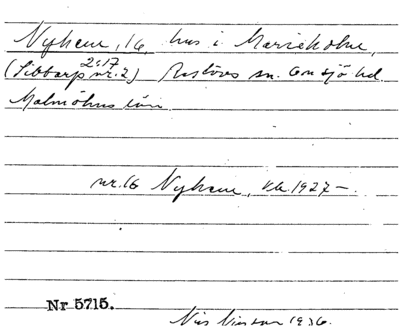 Nyhem, 16, hus i Marieholm,
2:17
(Sibbarp nr. 2) Reslövs sn. Onsjö hd.
Malmöhus län.
nr. 16 Nyhem, 1927 –.
Nr 5715.
Nils 1936.